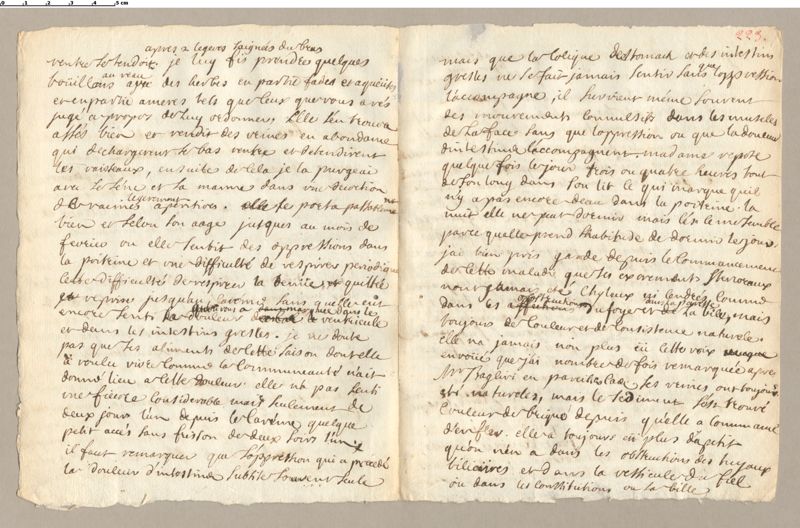 apres 2 legeres seignées du bras
ventre se tendoit. je luy fis prendre quelques
bouillons au veau avec des herbes en partie fades et aqueuses
et en partie ameres tels que ceux que vous aves
jugé a propos de luy ordonner. Elle s'en trouva
assés bien et rendit des urines en abondance
qui dechargerent le bas ventre et detendirent
les vaisseaux, ensuite de cela je la purgeai
avec le sené et la manne dans une decoction
de racines aperitives. elle se porta passablement
bien et selon son aage jusques au mois de
fevrier ou elle sentit des oppressions dans
la poitrine et une difficulté de respirer periodique
cette difficulté de respirer la quittée
et reprise jusqu'au careme sans quelle eut
encore senti de douleur dans le ventricule
et dans les intestins gresles. je ne doute
pas que les aliments de cette saison dont elle
a voulu vivre comme la communauté n'ait
donné lieu a cette douleur. elle n'a pas senti
une fievre considerable mais seulement de
deux jours l'un depuis le careme quelque
petit accés sans frisson de deux jours l'un
il faut remarquer que l'oppression qui a precedé
la douleur d'intestins subsiste souvent seule
223.
mais que la colique d'estomach et des intestins
gresles ne se fait jamais sentir sans que l'oppression
l'accompagne, il survient même souvent
des mouvements convulsifs dans les muscles
de la face sans que l'oppression ou que la douleur
d'intestins l'accompagnent. madame repose
quelque fois le jour trois ou quatre heures tout
de son long dans son lit ce qui marque qu'il
n'y a pas encore d'eau dans la poitrine. la
nuit elle ne peut dormir mais c'est ce me semble
parce quelle prend l'habitude de dormir le jour.
j'ai bien pris garde depuis le commencement
de cette maladie que les excrements stercoraux
n'ont jamais eté chyleux ni cendrés comme
dans les obstructions du foye et de la bile, mais
toujours de couleur et de consistence naturele.
elle n'a jamais non plus eu cette voix
enrouée que j'ai nombre de fois remarquée apres
Mr Baglivi en pareils cas. les urines ont toujours
été natureles, mais le sediment s'est trouvé
couleur de brique depuis qu'elle a commancé
d'enfler. elle a toujours eu plus d'apetit
qu'on n'en a dans les obstructions des tuyaux
biliaires et dans la vessicule du fiel
ou dans les constitutions ou la bille